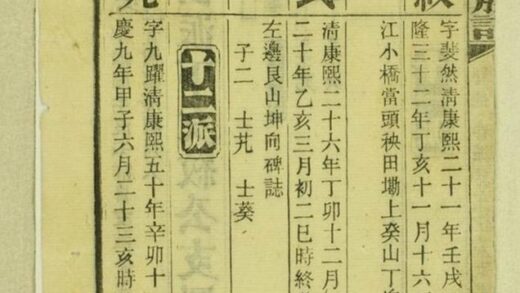 字斐然清康熙二十一年壬戌
隆三十二年丁亥十一月十六
江小橋當頭秧田墈上癸山丁
清康熙二十六年丁卯十二月
二十年乙亥三月初二巳時終
左邊艮山坤向碑誌
子二 士芃 士葵
十一派
字九躍清康熙五十年辛卯十
慶九年甲子六月二十三亥時